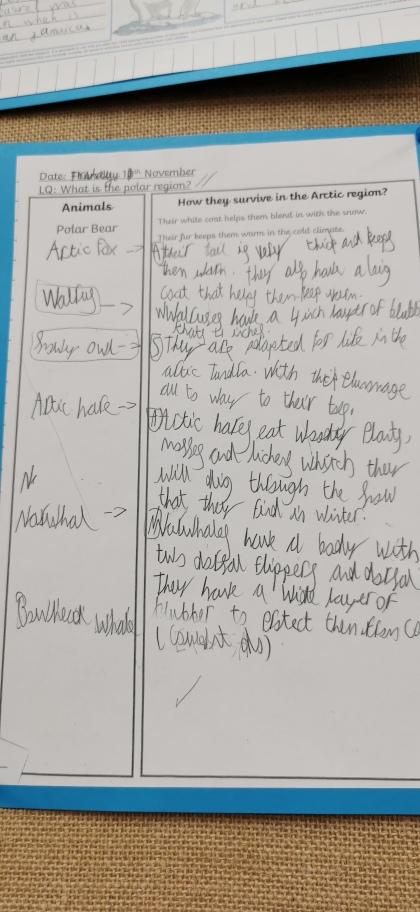 n when is
an
Date: 1 th November
LQ: What is the polar region?
Animals
How they survive in the Arctic region?
Polar Bear
Their white coat helps them blend in with the snow.
Their fur keeps them warm in the cold climate.
Artic fox
their tail is very thick and keeps
then warm. they also have a big
coat that helps them keep warm.
have a 4 inch layer of
thats 10 inches.
Snowy owl
They are adapted for life in the
artic Tundra. With their Plummage
all to way to their toes.
Artic hare
Arctic hares eat Plants,
mosses and lichens which they
will dig through the snow
that they find in winter.
N
have a body with
two dorsal flippers and dorsal
they have a wide layer of
blubber to Protect them from co
Bowhead whale